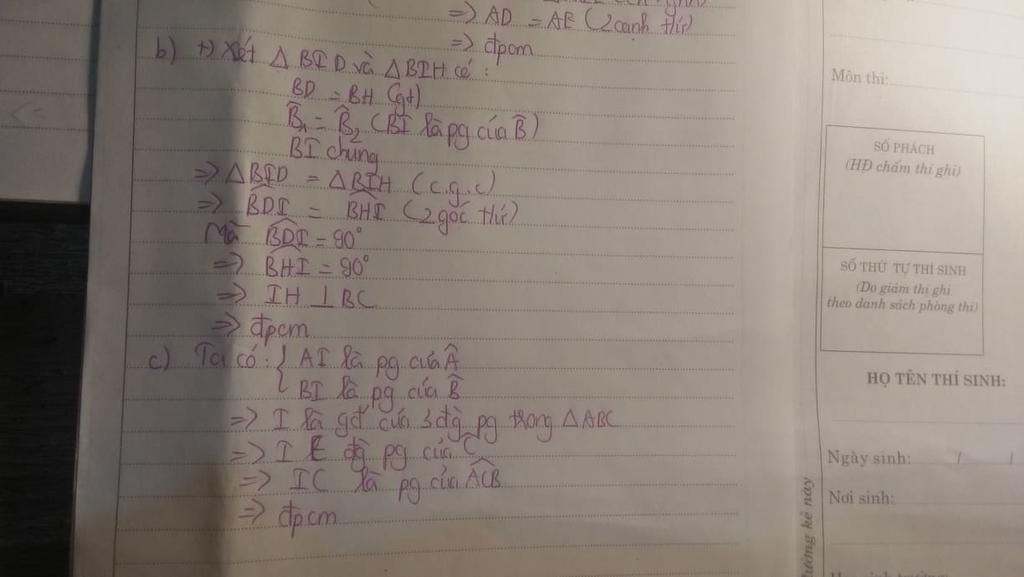 => AD = AE (2 cạnh t/ứ)
=> đpcm
b) +) Xét △ BID và △BIH có :
BD = BH (gt)
B̂₁ = B̂₂ (BI là pg của B̂)
BI chung
=> △BID = △BIH (c.g.c)
=> BDI = BHI (2 góc t/ứ)
Mà BDI = 90°
=> BHI = 90°
=> IH ⊥ BC
=> đpcm
c) Ta có : { AI là pg của Â
BI là pg của B̂
=> I là gđ của 3 đg pg trong △ABC
=> I ∈ đg pg của Ĉ
=> IC là pg của ACB
=> đpcm
Môn thi:
SỐ PHÁCH
(HĐ chấm thi ghi)
SỐ THỨ TỰ THÍ SINH
(Do giám thị ghi
theo danh sách phòng thi)
HỌ TÊN THÍ SINH:
Ngày sinh: / /
Nơi sinh:
đường kẻ này